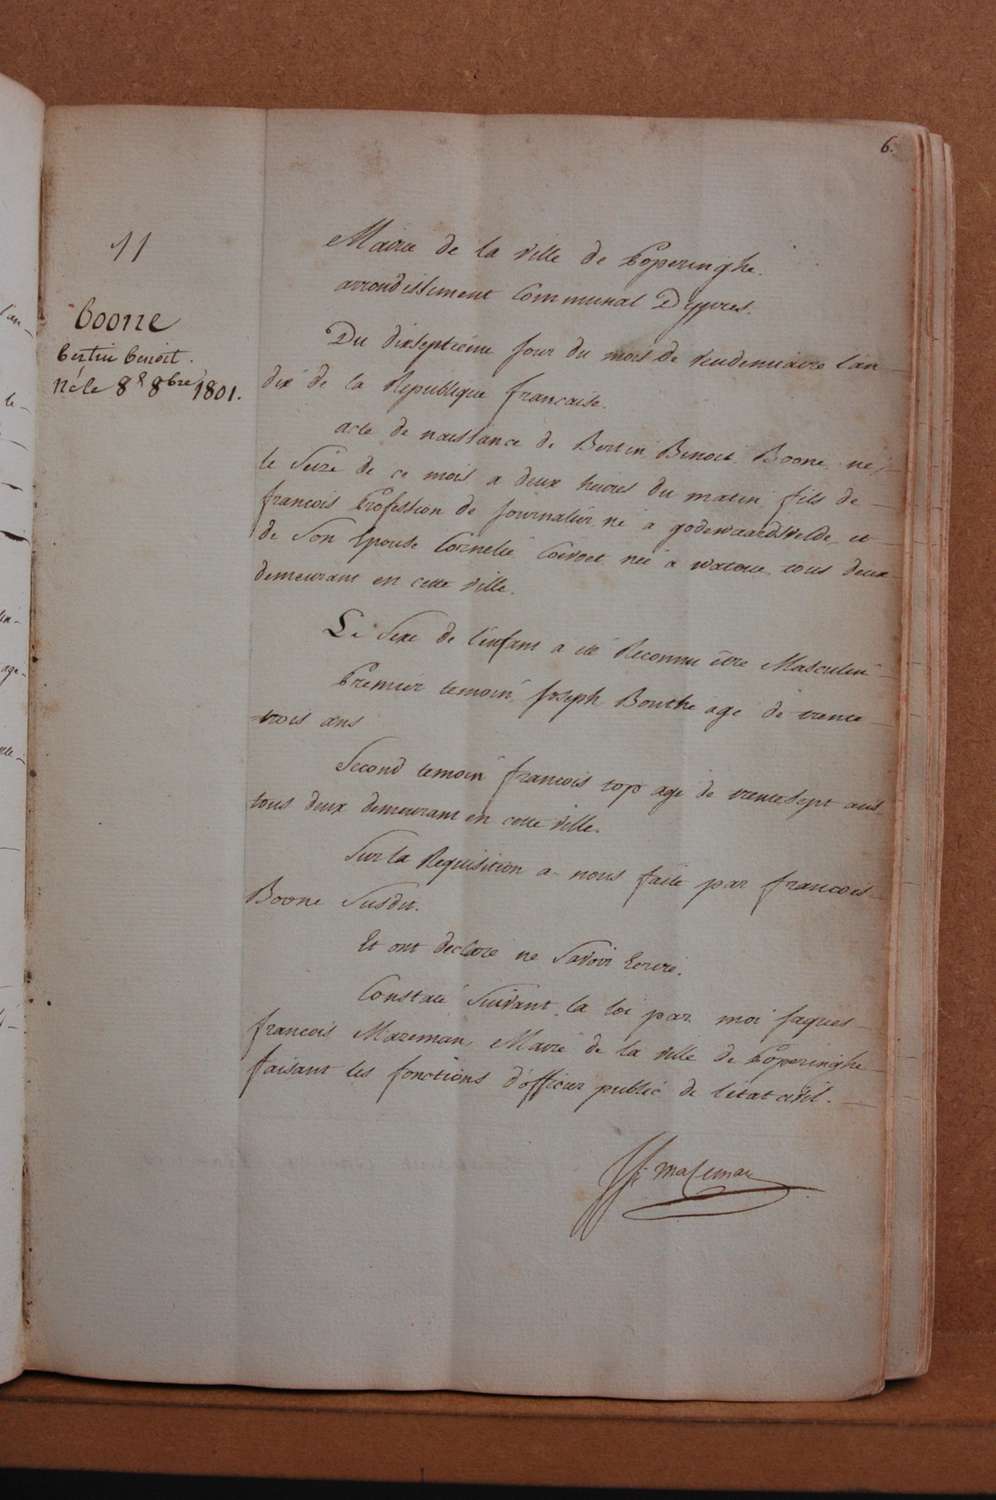 6.
11
Boone
bertin benoit.
Né le 8 8bre 1801.
Mairie de la ville de Poperinghe.
arrondissement Communal D'ypres.
Du dixseptieme jour du mois de Vendemiaire l'an
dix de la Republique francaise.
acte de naissance de Bertin Benoit Boone né
le Seize de ce mois a deux heures du matin fils de
francois Profession de journalier né a godewaersvelde et
de Son Epouse Cornelie née a watoue tous deux
demeurant en cette ville.
Le Sexe de l'enfant a été Reconnu être Masculin
Premier temoin Joseph Bouthe agé de trente
trois ans
Second temoin francois top agé de trentesept ans
tous deux demeurant en cette ville.
Sur la Requisition a nous faite par francois
Boone Susdit.
Et ont declaré ne Savoir Ecrire.
Constaté Suivant la loi par moi Jaques
francois Mazeman Maire de la ville de Poperinghe
faisant les fonctions d'officier public de l'état civil.
JF Mazeman